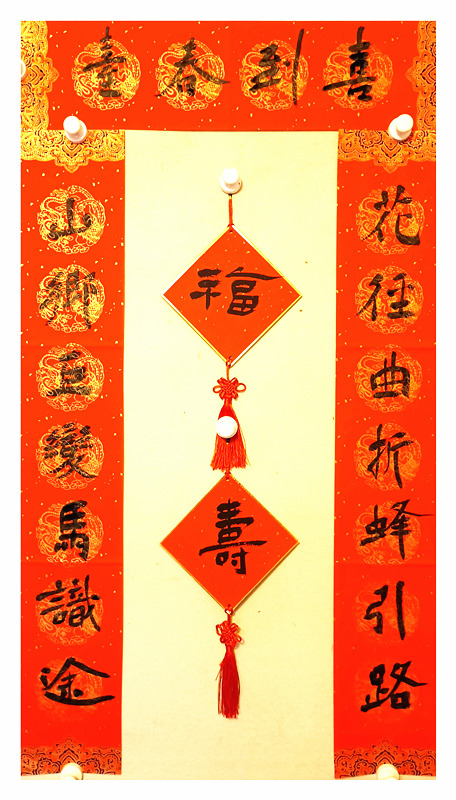 喜到春臺
花徑曲折蜂引路
山鄉巨變馬識途
福
壽